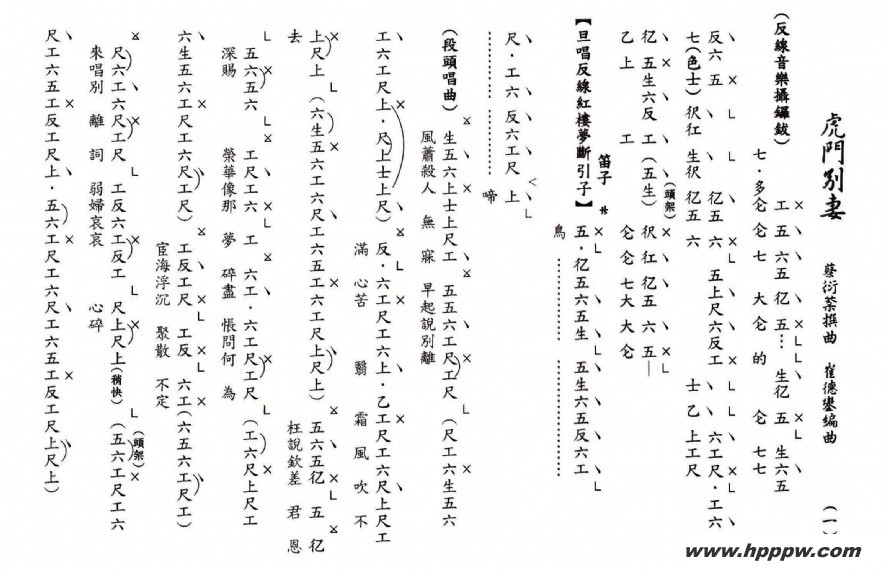 虎門別妻 藝衍棻撰曲 崔德鑾編曲 (一)
(反線音樂攝鑼鈸) 工五六五 亿 五… 生亿 五 生六五
七·多仑仑七 大仑 的 仑七七
反六五 亿五六 五上尺六反工 六工尺·工六
七(色士)伬仜 生伬 亿五六 士乙上工尺
亿五生六反工(五生) (頭架) 伬仜 亿五 六五—
乙上 工 仑仑七大大仑
笛子 サ
【旦唱反線紅樓夢斷引子】五·亿五六五生 五生六五反六工
鳥
尺·工六反六工尺上
啼
(段頭唱曲) 生五六上士上尺工 五五六工尺工尺 (尺工六生五六
風蕭殺人 無 寐 早起說別離
工六工尺上·尺上士上尺) 反·六工尺工六上·乙工尺工六尺上尺工
滿 心苦 翳 霜 風 吹 不
上尺上 (六生五六工六尺工六五工六工尺上尺上) 五六五亿 五 亿
去 枉說欽差 君 恩
五六五六 工尺工六 工 六工·六工尺工尺 (工六尺上尺工
深賜 榮華像那 夢 碎盡 悵問何 為
六生五六工尺工六尺工尺) 工反工尺 工反 六工(六五六工尺工)
宦海浮沉 聚散 不定
尺六工六尺工尺 工反六工反工 尺上尺上(稍快) (頭架) (五六工尺工六
來唱別 離 詞 弱婦哀哀 心碎
尺工六五工反工尺上·五六工尺工六尺工六五工反工尺上尺上)
www.hpppw.com